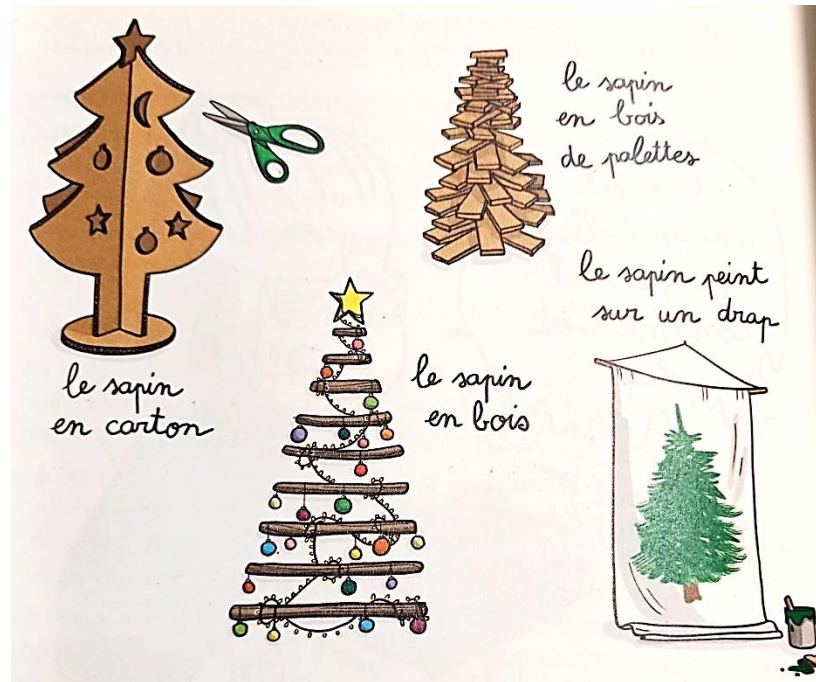 le sapin
en bois
de palettes
le sapin peint
sur un drap
le sapin
en carton
le sapin
en bois